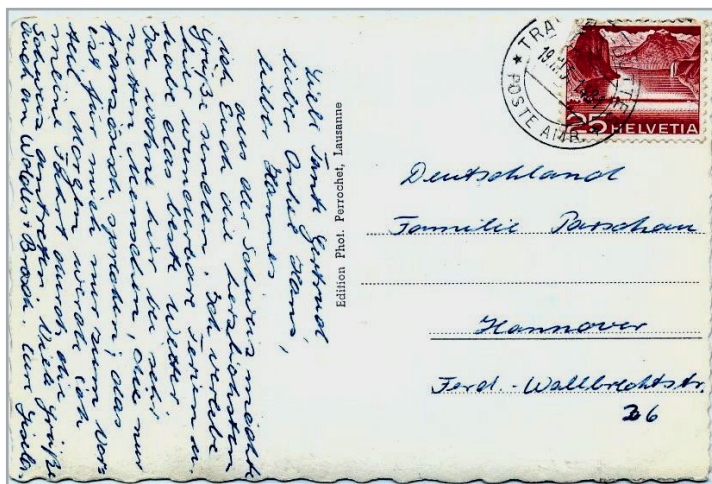 Liebe Tante Gertrud,
lieber Onkel Hans,
lieber Hannes
aus der Schweiz möchte
ich Euch die herzlichsten
Grüße senden. Ich verlebe
hier wunderbare Ferien u.
habe das beste Wetter
Ich wohne hier bei sehr
netten Menschen, die nur
französisch sprechen, das
ist für mich nur zum Vor-
teil. Morgen werde ich
meine Fahrt durch die
Schweiz antreten. Viele Grüße
auch an Waldis + Brosch. Eure Gisela.
Edition Phot. Perrochet, Lausanne
POSTE AMB.
25 HELVETIA
Deutschland
Familie Parschau
Hannover
Ferd.-Wallbrechtstr.
36